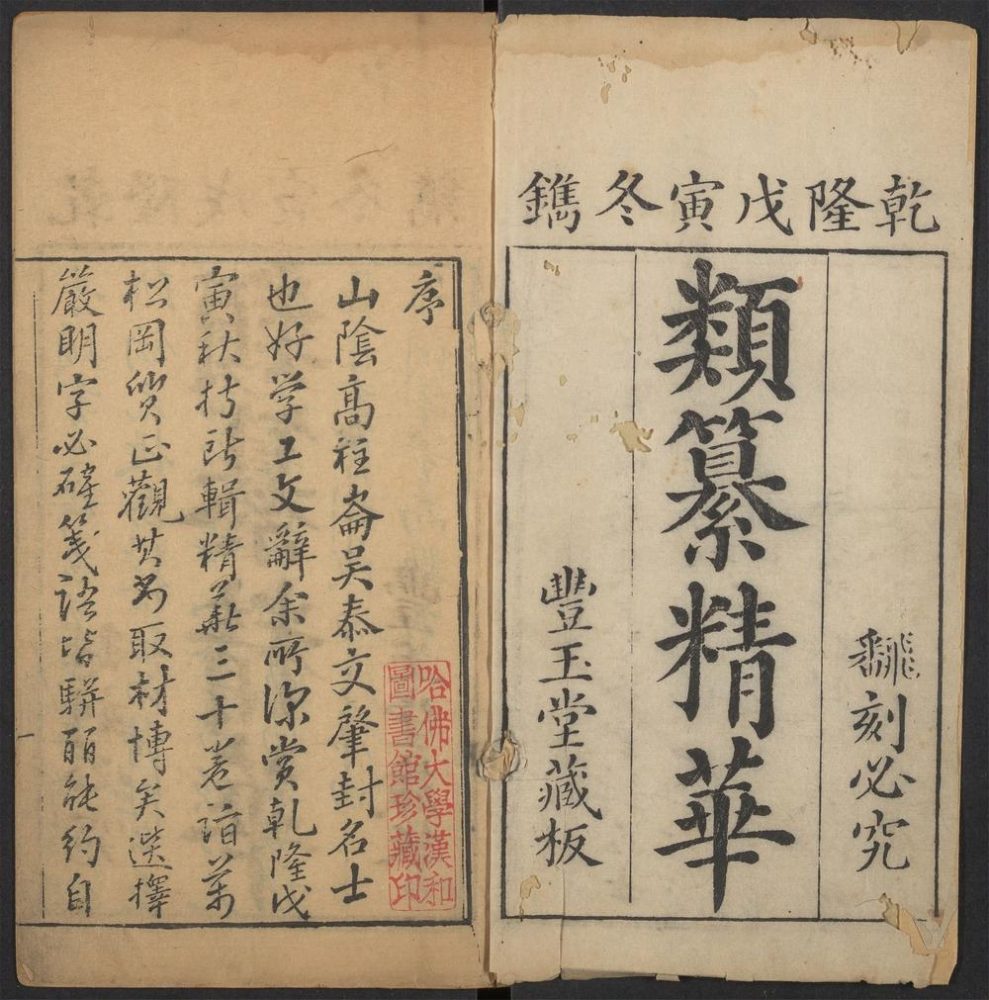 乾隆戊寅冬鐫
飜刻必究
類纂精華
豐玉堂藏板
序
山陰高柱崙吳泰文肇封名士
也好学工文辭余所深賞乾隆戊
寅秋持所輯精華三十卷詣
松岡質正觀其取材博矣選擇
嚴明字必確箋語皆騈丽能約自
哈佛大學漢和
圖書館珍藏印